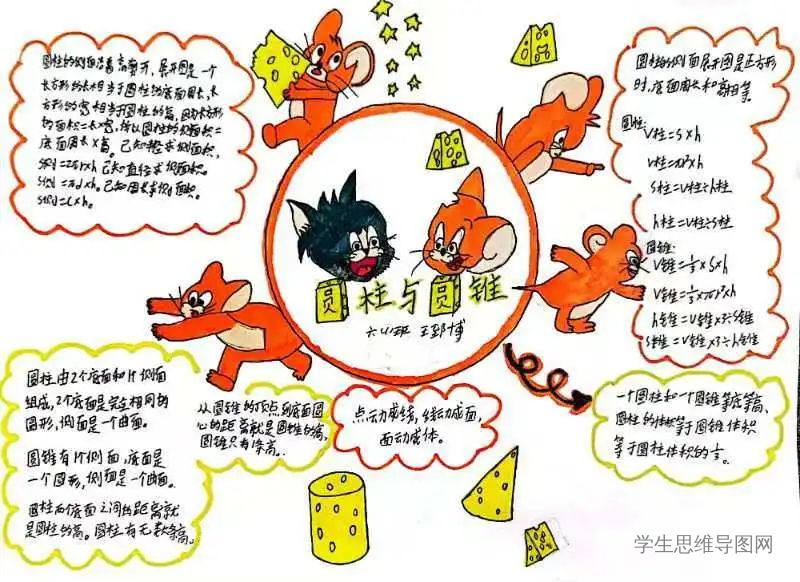 圆柱的侧面沿着高剪开，展开图是一个
长方形的长相当于圆柱的底面周长，长
方形的宽相当于圆柱的高，因为长方形
的面积=长×宽，所以圆柱的侧面积=
底面周长×高。已知半径求侧面积，
S侧=2πr×h 已知直径求侧面积。
S侧=πd×h。已知周长求侧面积。
S侧=C×h。
圆柱的侧面展开图是正方形
时，底面周长和高相等。
圆柱:
V柱=S×h
V柱=πr²×h
S柱=V柱÷h柱
h柱=V柱÷S柱
圆锥:
V锥=⅓×S×h
V锥=⅓×πr²×h
h锥=V锥×3÷S锥
S锥=V锥×3÷h锥
圆柱与圆锥
六(1)班
圆柱由2个底面和1个侧面
组成，2个底面是完全相同的
圆形，侧面是一个曲面。
圆锥有1个侧面，底面是
一个圆形，侧面是一个曲面。
圆柱两个底面之间的距离就
是圆柱的高。圆柱有无数条高。
从圆锥的顶点到底面圆
心的距离就是圆锥的高，
圆锥只有1条高。
点动成线，线动成面，
面动成体。
一个圆柱和一个圆锥等底等高、
圆柱的体积等于圆锥体积
等于圆柱体积的⅓。
学生思维导图网